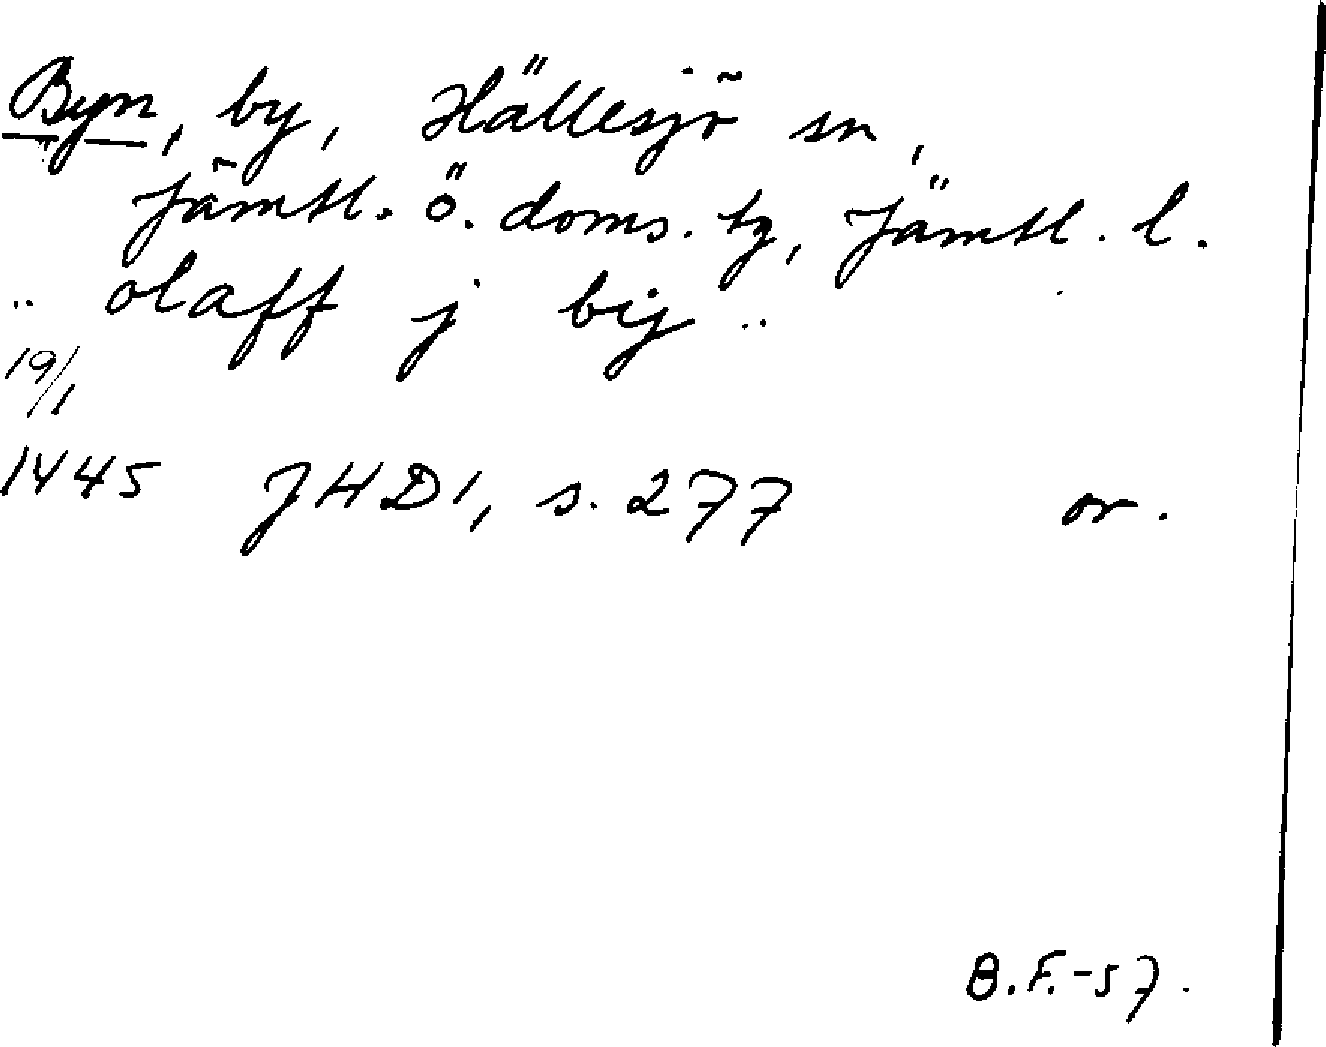 Byn, by, Hällesjö sn,
Jämtl. ö. doms. tg, Jämtl. l.
.. olaff j bij ..
19/1
1445 JHD1, s. 277 or.
B.F.-57.